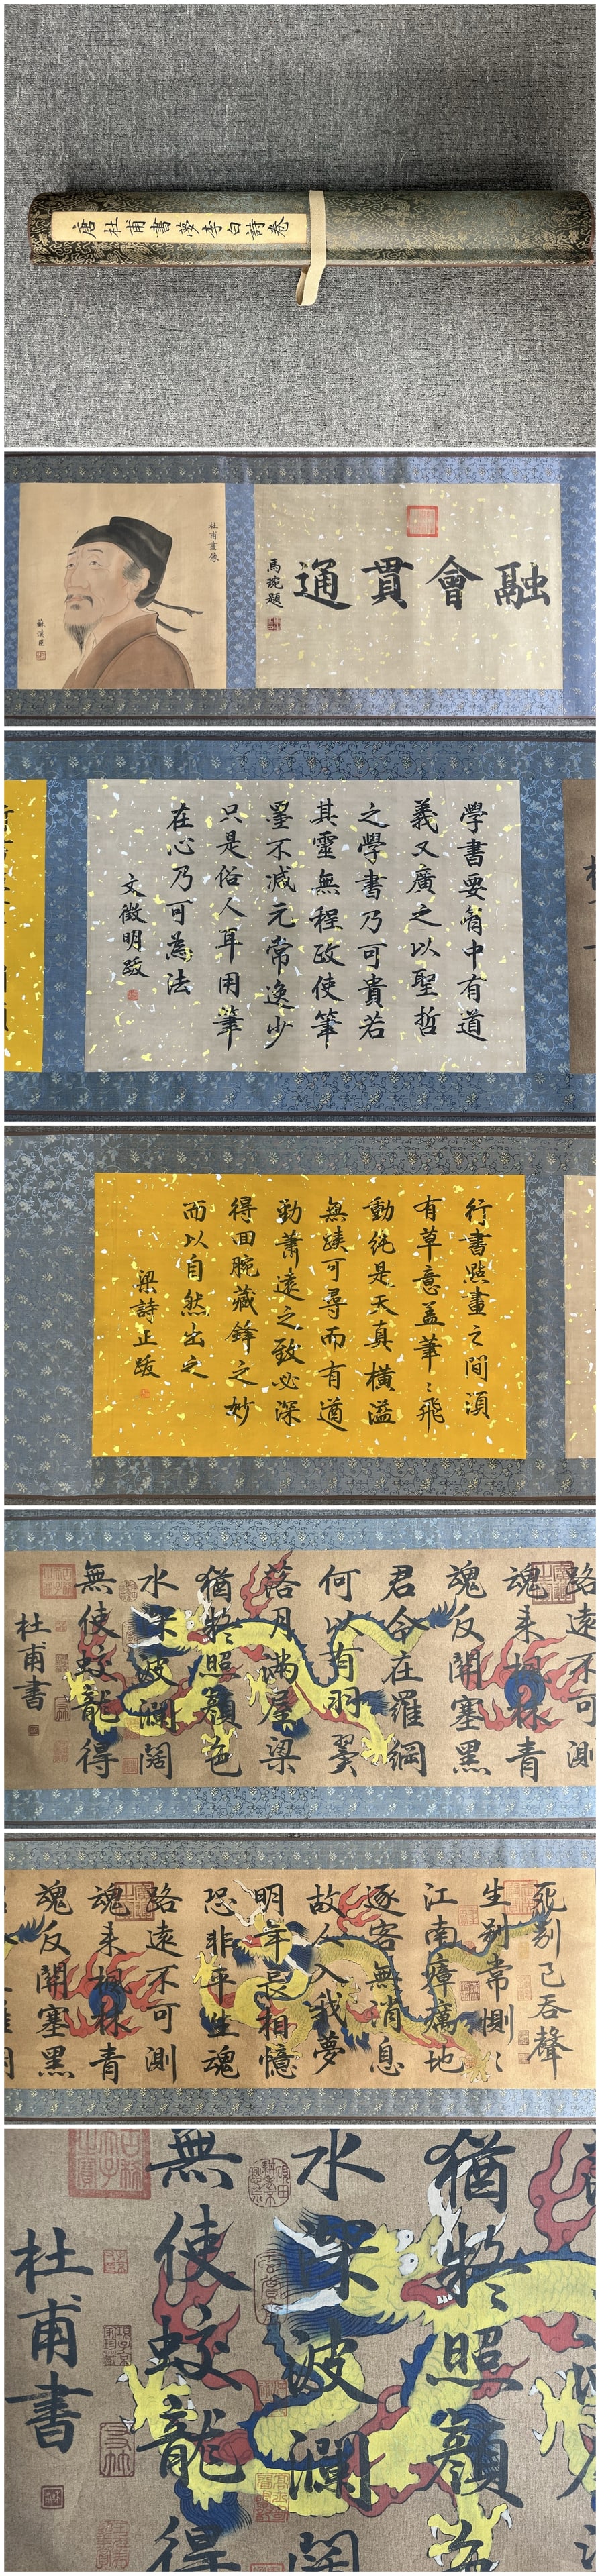 唐杜甫書夢李白詩卷
融會貫通
馬琬題
杜甫畫像
蘇漢臣
學書要胷中有道
義又廣之以聖哲
之學書乃可貴若
其靈無程政使筆
墨不減元常逸少
只是俗人耳用筆
在心乃可為法
文徵明跋
行書點畫之間須
有草意蓋筆〻飛
動純是天真橫溢
無蹟可尋而有遒
勁蕭遠之致必深
得回腕藏鋒之妙
而以自然出之
梁詩正跋
路遠不可測
魂来楓林青
魂反關塞黑
君今在羅網
何以有羽翼
落月滿屋梁
猶疑照顏色
水深波瀾闊
無使蛟龍得
杜甫書
死別已吞聲
生別常惻〻
江南瘴癘地
逐客無消息
故人入我夢
明年長相憶
恐非平生魂
路遠不可測
魂来楓林青
魂反關塞黑
猶疑照顏色
水深波瀾闊
無使蛟龍得
杜甫書